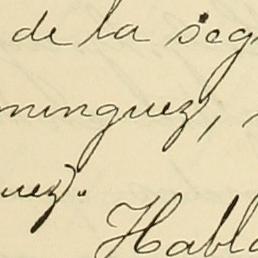 de la seg
minguez,
uez).
Habla